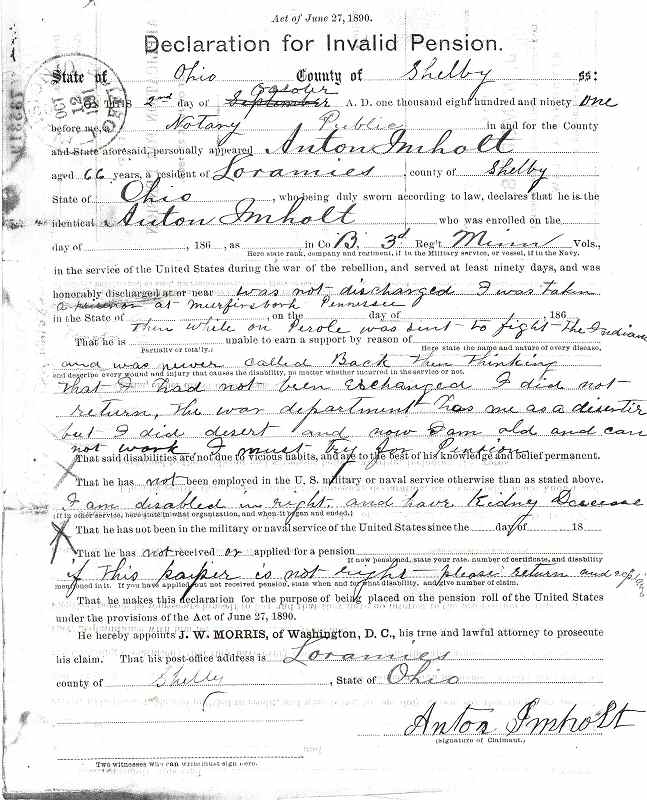 Act of June 27, 1890.
Declaration for Invalid Pension.
State of Ohio County of Shelby ss:
ON THIS 2nd day of September October A. D. one thousand eight hundred and ninety one
before me, a Notary Public in and for the County
and State aforesaid, personally appeared Anton Imholt
aged 66 years, a resident of Loramies, county of Shelby
State of Ohio, who being duly sworn according to law, declares that he is the
identical Anton Imholt who was enrolled on the
day of , 186 , as in Co B. 3d Reg't Minn Vols.,
Here state rank, company and regiment, if in the Military service, or vessel, if in the Navy.
in the service of the United States during the war of the rebellion, and served at least ninety days, and was
honorably discharged at or near was not discharged I was taken
a prisoner at murfinsboroh Tennessee
in the State of , on the day of 186
Then while on Perole was sent to fight the Indians
That he is unable to earn a support by reason of
Partially or totally. Here state the name and nature of every disease,
and was never called Back then thinking
and describe every wound and injury that causes the disability, no matter whether incurred in the service or not.
that I had not been Exchanged I did not
return, the war department has me as a deserter
but I did desert and now I am old and can
not work I must try for Pention
That said disabilities are not due to vicious habits, and are to the best of his knowledge and belief permanent.
That he has not been employed in the U. S. military or naval service otherwise than as stated above.
I am disabled in right, and have Kidney Desease
(If in other service, here state in what organization, and when it began and ended.)
That he has not been in the military or naval service of the United States since the day of 18
That he has not received or applied for a pension
If now pensioned, state your rate, number of certificate, and disability
if this paiper is not right please return and
mentioned in it. If you have applied, but not received pension, state when and for what disability, and give number of claim.
That he makes this declaration for the purpose of being placed on the pension roll of the United States
under the provisions of the Act of June 27, 1890.
He hereby appoints J. W. MORRIS, of Washington, D. C., his true and lawful attorney to prosecute
his claim. That his post-office address is Loramies
county of Shelby, State of Ohio
Anton Imholt
(Signature of Claimant.)
Two witnesses who can write must sign here.